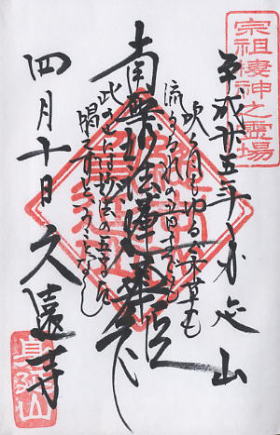 宗祖棲神之霊場
平成廿五年 身延山
吹く風もゆるぐ木草も
流るる水の音までも
南無妙法蓮華経
此の山には妙法の五字を
唱へずと云うことなし
四月十日 久遠寺
身延山